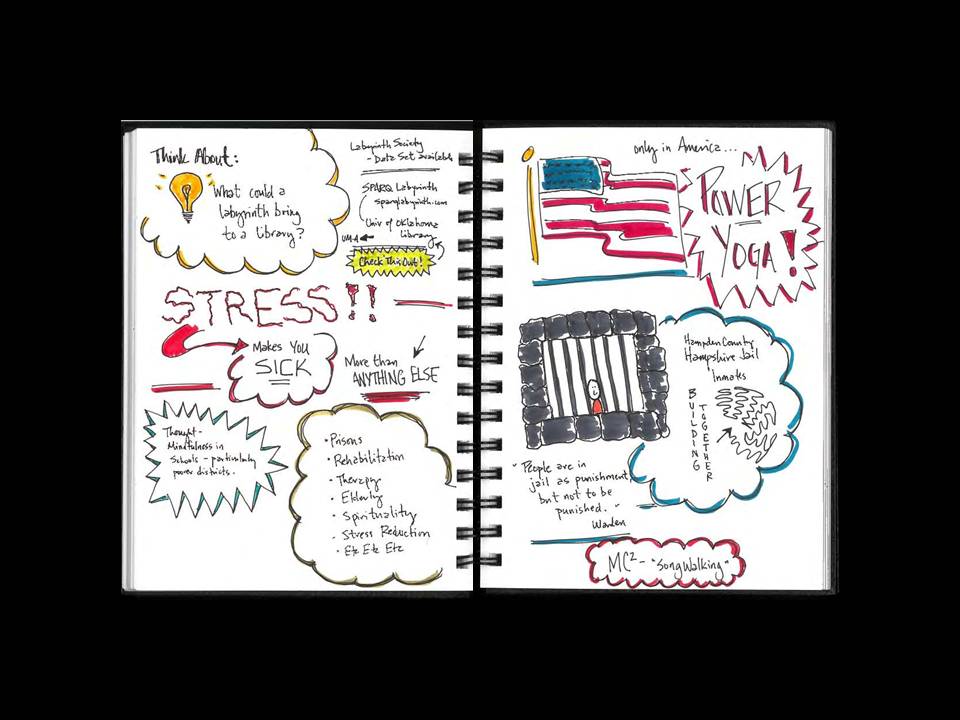 Think About:
What could a
labyrinth bring
to a library?
Labyrinth Society
- Data Set available
SPARQ Labyrinth
sparqlabyrinth.com
Univ of Oklahoma
Library
UM-A
Check This Out!
STRESS!!
Makes You
SICK
More than
ANYTHING ELSE
Thought -
Mindfulness in
Schools - particularly
poorer districts.
• Prisons
• Rehabilitation
• Therapy
• Elderly
• Spirituality
• Stress Reduction
• Etc Etc Etc
only in America...
POWER
YOGA!
Hampden County
Hampshire Jail
Inmates
BUILDING
TOGETHER
"People are in
jail as punishment,
but not to be
punished."
Warden
MC² - "SongWalking"